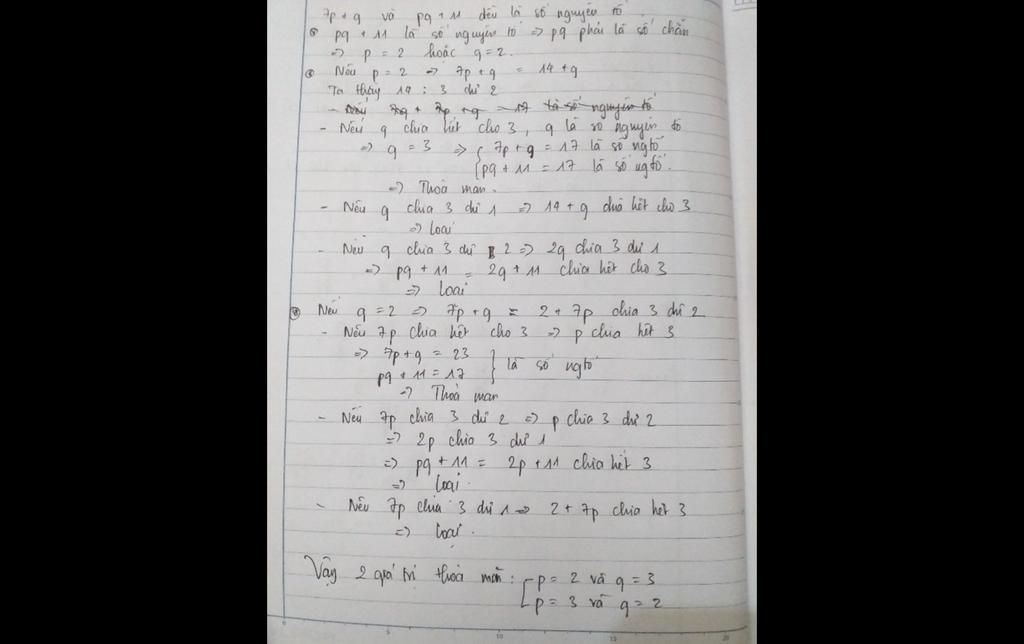 7p + q và pq + 11 đều là số nguyên tố.
pq + 11 là số nguyên tố => pq phải là số chẵn
=> p = 2 hoặc q = 2.
Nếu p = 2 => 7p + q = 14 + q
Ta thấy 14 : 3 dư 2
- Nếu 7q + 7p + q = 17 là số nguyên tố
- Nếu q chia hết cho 3, q là số nguyên tố
=> q = 3 => { 7p + q = 17 là số ngtố
pq + 11 = 17 là số ngtố.
=> Thoả mãn.
- Nếu q chia 3 dư 1 => 14 + q chia hết cho 3
=> loại
- Nếu q chia 3 dư 2 => 2q chia 3 dư 1
=> pq + 11 = 2q + 11 chia hết cho 3
=> loại
Nếu q = 2 => 7p + q = 2 + 7p chia 3 dư 2
- Nếu 7p chia hết cho 3 => p chia hết 3
=> 7p + q = 23
pq + 11 = 17 } là số ngtố
=> Thoả mãn
- Nếu 7p chia 3 dư 2 => p chia 3 dư 2
=> 2p chia 3 dư 1
=> pq + 11 = 2p + 11 chia hết 3
=> loại.
- Nếu 7p chia 3 dư 1 => 2 + 7p chia hết 3
=> loại.
Vậy 2 giá trị thoả mãn : [ p = 2 và q = 3
p = 3 và q = 2
0 5 10 15 20